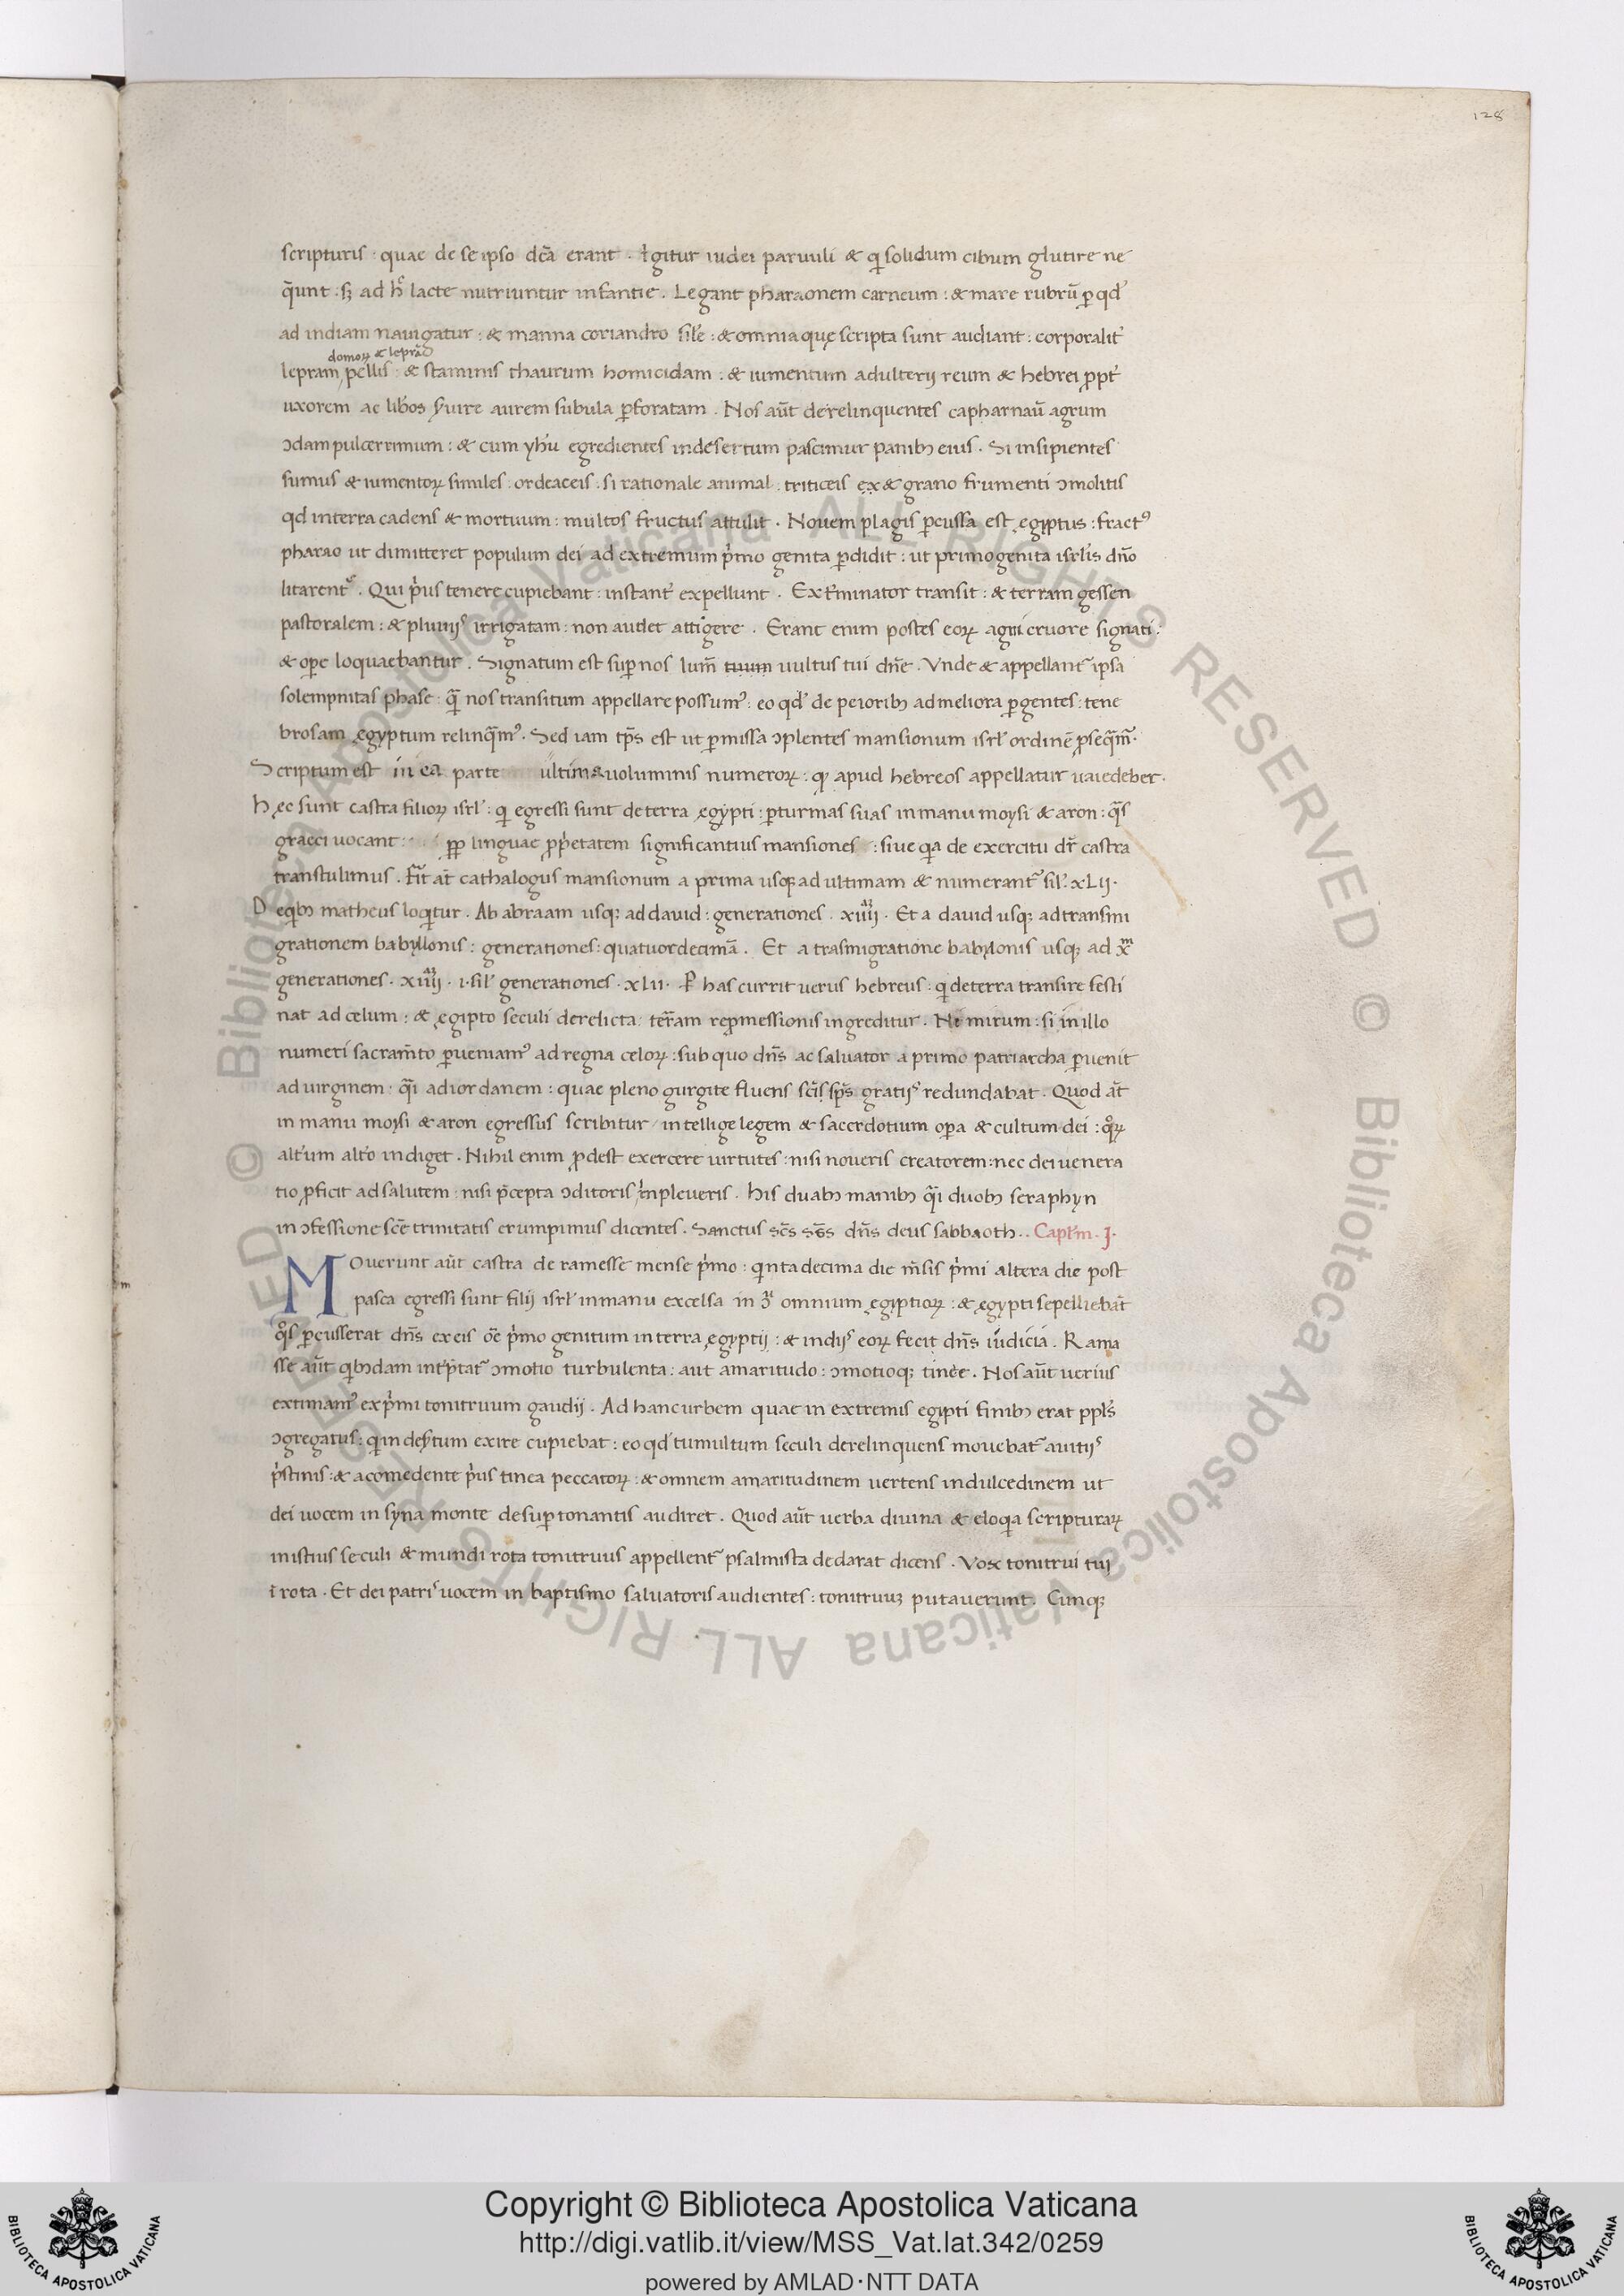 128
scripturis : quae de se ipso dc̄a erant . Igitur iudei paruuli & qi solidum cibum glutire ne
q̄unt : sꝫ ad h̄c lacte nutriuntur infantie . Legant pharaonem carneum : & mare rubrū ꝑ qđ
ad indiam nauigatur : & manna coriandro sil̄e : & omnia quę scripta sunt audiant : corporalit̄
domoꝝ & leprā
lepram pellis : & staminis thaurum homicidam : & iumentum adulterij reum & hebrei ꝓpt̄
uxorem ac lib̄os ẜuire aurem subula ꝑforatam . Nos aūt derelinquentes capharnaū agrum
ɔdam pulcerrimum : & cum yhū egredientes indesertum pascimur panibꝫ eius . Si insipientes
sumus & iumentoꝝ similes : ordeaceis . si rationale animal : triticeis ex & grano frumenti ɔmolitis
qd in terra cadens & mortuum : multos fructus attulit . Nouem plagis ꝑcussa est ęgiptus : fractꝰ
pharao ut dimitteret populum dei ad extremum pⁱmo genita ꝑdidit : ut primogenita isrl̄is dn̄o
litarentᷣ . Qui pⁱus tenere cupiebant : instant̄ expellunt . Ext̄minator transit : & terram gessen
pastoralem : & pluuijs irrigatam : non audet attigere . Erant enim postes eoꝝ agni cruore signati :
& oꝑe loquaebantur . Signatum est suꝑ nos lum̄ tuum uultus tui dn̄e . Vnde & appellantᷣ ipsa
solempnitas phase : q̄ nos transitum appellare possumꝰ : eo qđ de peioribꝫ ad meliora ꝑgentes : tene
brosam ęgyptum relinq̄mꝰ . Sed iam tp̄s est ut ꝑmissa ɔplentes mansionum isrl̄ ordinē ꝓseq̄mᷣ .
Scriptum est in ea parte ultima uoluminis numeroꝝ : qͥ apud hebreos appellatur uaiedeber .
Hęc sunt castra filioꝝ isrl̄ : qi egressi sunt de terra ęgypti : ꝑ turmas suas in manu moysi & aron : q̄s
graeci uocant : ꝓp linguae ꝓpⁱetatem significantius mansiones : siue qia de exercitu dr̄ castra
transtulimus . Fit at̄ cathalogus mansionum a prima usqꝫ ad ultimam & numerantᷣ sil̄ . xLij .
De qibꝫ matheus loqitur . Ab abraam usqꝫ ad dauid : generationes . xiiij . Et a dauid usqꝫ ad transmi
grationem babyllonis : generationes : quatuordecimā . Et a trasmigratione babylonis usqꝫ ad xᵐ
generationes . xiiij . i . sil̄ generationes . xLii . P has currit uerus hebreus : qi de terra transire festi
nat ad celum : & ęgipto seculi derelicta : ter̄am repⁱmessionis ingreditur . Ne mirum : si in illo
numeri sacram̄to ꝑueniamꝰ ad regna celoꝝ : sub quo dn̄s ac saluator a primo patriarcha ꝑuenit
ad uirginem : qⁱ ad iordanem : quae pleno gurgite fluens sc̄i sp̄s gratijs redundabat . Quod at̄
in manu moysi & aron egressus scribitur : intellige legem & sacerdotium oꝑa & cultum dei : qͦꝝ
alt̄um alt̄o indiget . Nihil enim ꝓdest exercere uirtutes : nisi noueris creatorem : nec dei uenera
tio ꝓficit ad salutem : nisi p̄cepta ɔditoris inpleueris . His duabꝫ manibꝫ qⁱ duobꝫ seraphyn
in ɔfessione sc̄e trinitatis erumpimus dicentes . Sanctus sc̄s sc̄s dn̄s deus sabbaoth .. Capl̄m . I .
Mouerunt aūt castra de ramesse mense pⁱmo : qinta decima die m̄sis pⁱmi altera die post
pasca egressi sunt filij isrl̄ in manu excelsa in omnium ęgiptioꝝ : & ęgypti sepelliebāt
qͦs ꝑcusserat dn̄s ex eis oē pⁱmo genitum in terra ęgyptij : & in dijs eoꝝ fecit dn̄s iudicia . Rama
sse aūt qibꝫdam int̄p̄tatᷣ ɔmotio turbulenta : aut amaritudo : ɔmotioqꝫ tinee . Nos aūt uerius
extimamꝰ expⁱmi tonitruum gaudij . Ad hanc urbem quae in extremis egipti finibꝫ erat ppl̄s
ɔgregatus : qi in deẜtum exire cupiebat : eo qđ tumultum seculi derelinquens mouebatᷣ a uitijs
pⁱstinis : & a comedente pⁱus tinea peccatoꝝ : & omnem amaritudinem uertens in dulcedinem ut
dei uocem in syna monte desuꝑ tonantis audiret . Quod aūt uerba diuina & eloqia scripturaꝝ
in istius seculi & mundi rota tonitruus appellentᷣ psalmista declarat dicens . Vox tonitrui tui
ī rota . Et dei patris uocem in baptismo saluatoris audientes : tonitruuꝫ putauerunt . Cunqꝫ
Copyright © Biblioteca Apostolica Vaticana
http://digi.vatlib.it/view/MSS_Vat.lat.342/0259
powered by AMLAD·NTT DATA